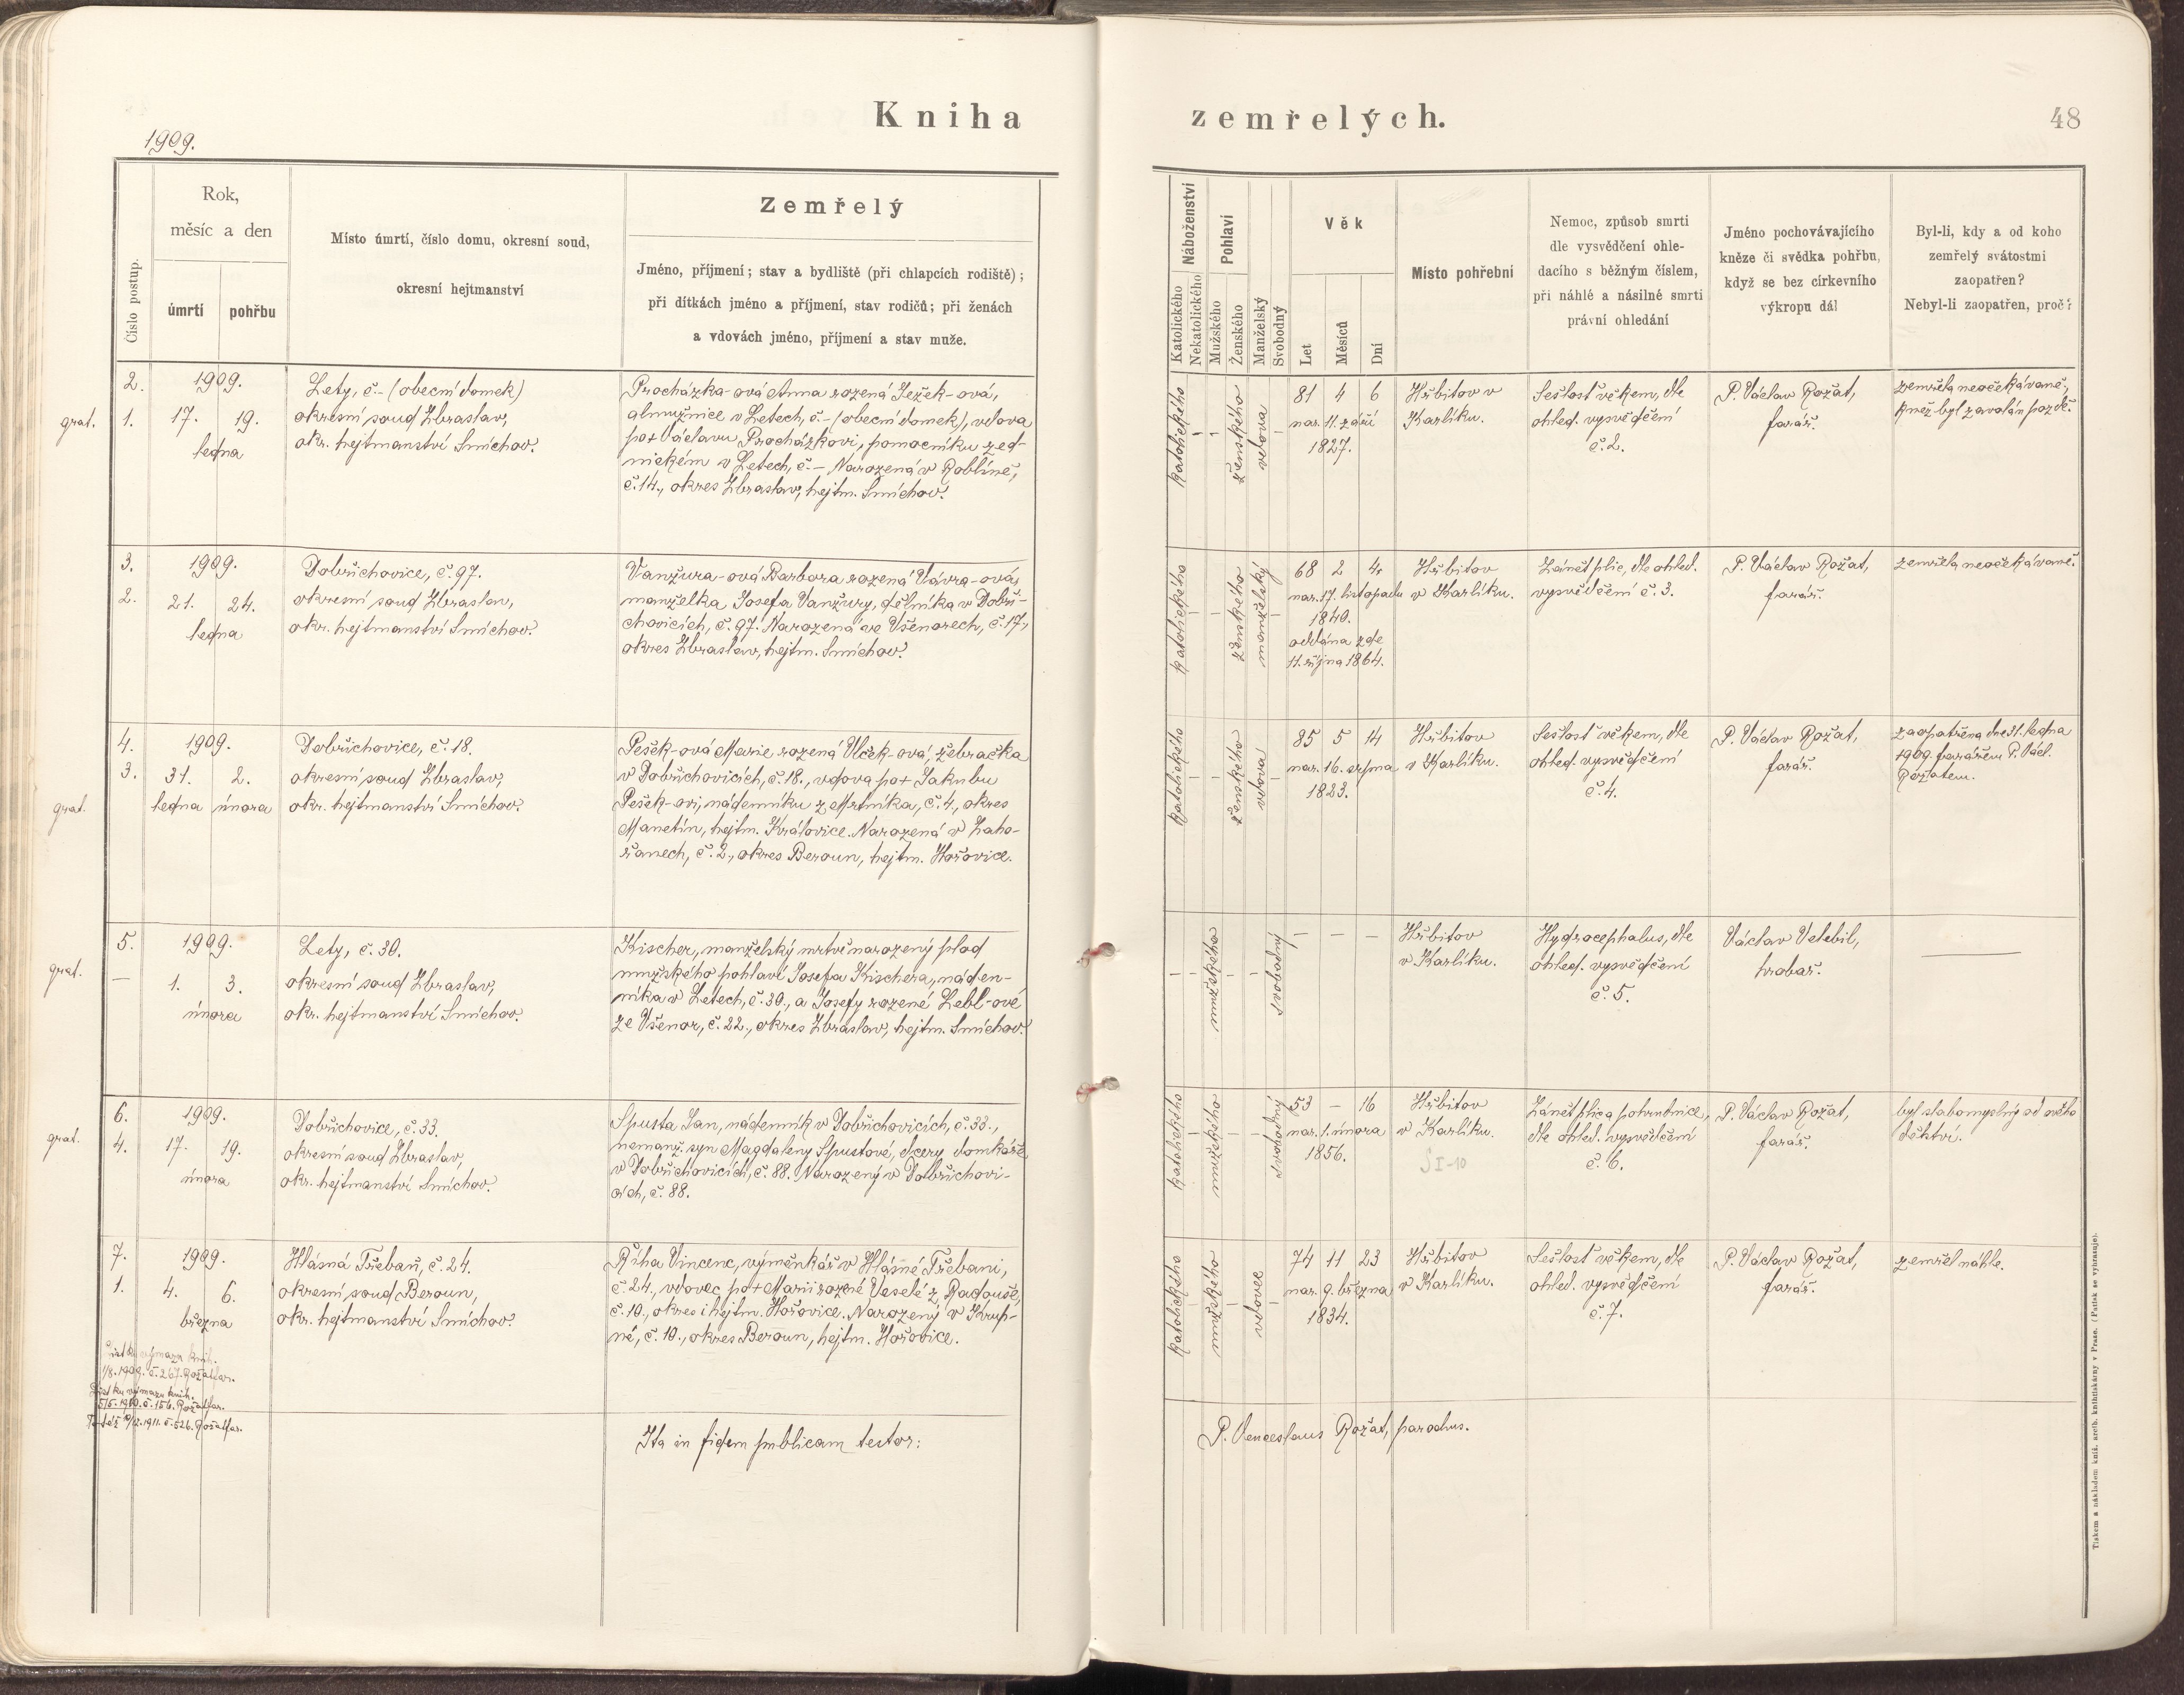 Kniha zemřelých.
48
1909.
Číslo postup.
Rok,
měsíc a den
úmrtí
pohřbu
Místo úmrtí, číslo domu, okresní soud,
okresní hejtmanství
Zemřelý
Jméno, příjmení; stav a bydliště (při chlapcích rodiště);
při dítkách jméno a příjmení, stav rodičů; při ženách
a vdovách jméno, příjmení a stav muže.
Náboženství
Katolického
Nekatolického
Pohlaví
Mužského
Ženského
Manželský
Svobodný
Věk
Let
Měsíců
Dní
Místo pohřební
Nemoc, způsob smrti
dle vysvědčení ohle-
dacího s běžným číslem,
při náhlé a násilné smrti
právní ohledání
Jméno pochovávajícího
kněze či svědka pohřbu,
když se bez církevního
výkropu dál
Byl-li, kdy a od koho
zemřelý svátostmi
zaopatřen?
Nebyl-li zaopatřen, proč?
grat.
2.
1.
1909.
17. 19.
ledna
Lety, č.- (obecní domek)
okresní soud Zbraslav,
okr. hejtmanství Smíchov.
Procházka-ová Anna rozená Ježek-ová,
almužnice v Letech, č.- (obecní domek), vdova
po + Václavu Procházkovi, pomocníku zed-
nickém v Letech, č.- Narozená v Roblíně,
č. 14., okres Zbraslav, hejtm. Smíchov.
katolického
ženského
vdova
81 4 6
nar. 11. září
1827.
Hřbitov v
Karlíku.
Sešlost věkem, dle
ohled. vysvědčení
č. 2.
P. Václav Rožat,
farář.
zemřela neočekávaně,
kněz byl zavolán pozdě.
3.
2.
1909.
21. 24.
ledna
Dobřichovice, č. 97.
okresní soud Zbraslav,
okr. hejtmanství Smíchov.
Vanžura-ová Barbora rozená Vávra-ová,
manželka Josefa Vanžury, dělníka v Dobři-
chovicích, č. 97. Narozená ve Všenorech, č. 17.,
okres Zbraslav, hejtm. Smíchov.
katolického
ženského
manželský
68 2 4
nar. 17. listopadu
1840.
oddána zde
11. října 1864.
Hřbitov
v Karlíku.
Zánět plic, dle ohled.
vysvědčení č. 3.
P. Václav Rožat,
farář.
zemřela neočekávaně.
grat.
4.
3.
1909.
31. 2.
ledna února
Dobřichovice, č. 18.
okresní soud Zbraslav,
okr. hejtmanství Smíchov.
Pešek-ová Marie rozená Vlček-ová, žebračka
v Dobřichovicích, č. 18., vdova po + Jakubu
Pešek-ovi, nádenníku z Mrtníka, č. 4., okres
Manetín, hejtm. Královice. Narozená v Zaho-
řanech, č. 2., okres Beroun, hejtm. Hořovice.
katolického
ženského
vdova
85 5 14
nar. 16. srpna
1823.
Hřbitov
v Karlíku.
Sešlost věkem, dle
ohled. vysvědčení
č. 4.
P. Václav Rožat,
farář.
zaopatřena dne 31. ledna
1909. farářem P. Václ.
Rožatem.
grat.
5.
—
1909.
1. 3.
února
Lety, č. 30.
okresní soud Zbraslav,
okr. hejtmanství Smíchov.
Kischer, manželský mrtvě narozený plod
mužského pohlaví Josefa Kischera, náden-
níka v Letech, č. 30., a Josefy rozené Lebl-ové
ze Všenor, č. 22., okres Zbraslav, hejtm. Smíchov.
mužského
svobodný
— — —
Hřbitov
v Karlíku.
Hydrocephalus, dle
ohled. vysvědčení
č. 5.
Václav Velebil,
hrobař.
—
grat.
6.
4.
1909.
17. 19.
února
Dobřichovice, č. 33.
okresní soud Zbraslav,
okr. hejtmanství Smíchov.
Spusta Jan, nádenník v Dobřichovicích, č. 33.,
nemanž. syn Magdaleny Spustové, dcery domkáře
v Dobřichovicích, č. 88. Narozený v Dobřichovi-
cích, č. 88.
katolického
mužského
svobodný
53 — 16
nar. 1. února
1856.
Hřbitov
v Karlíku.
SI-10
Zánět plic a pohrudnice,
dle ohled. vysvědčení
č. 6.
P. Václav Rožat,
farář.
byl slabomyslný od svého
dětství.
7.
1.
1909.
4. 6.
března
Hlásná Třebaň, č. 24.
okresní soud Beroun,
okr. hejtmanství Smíchov.
Říha Vincenc, výměnkář v Hlásné Třebani,
č. 24., vdovec po + Marii rozené Veselé z Radouše,
č. 10., okres i hejtm. Hořovice. Narozený v Krup-
né, č. 10., okres Beroun, hejtm. Hořovice.
katolického
mužského
vdovec
74 11 23
nar. 9. března
1834.
Hřbitov
v Karlíku.
Sešlost věkem, dle
ohled. vysvědčení
č. 7.
P. Václav Rožat,
farář.
zemřel náhle.
List ku výmazu knih.
1/8. 1909. č. 267. Rožat far.
List ku výmazu knih.
5/5. 1910. č. 156. Rožat far.
12. 1911. č. 526. Rožat far.
Ita in fidem publicam testor:
P. Venceslaus Rožat, parochus.
Tiskem a nákladem kníž. arcib. knihtiskárny v Praze. (Patisk se vyhrazuje).